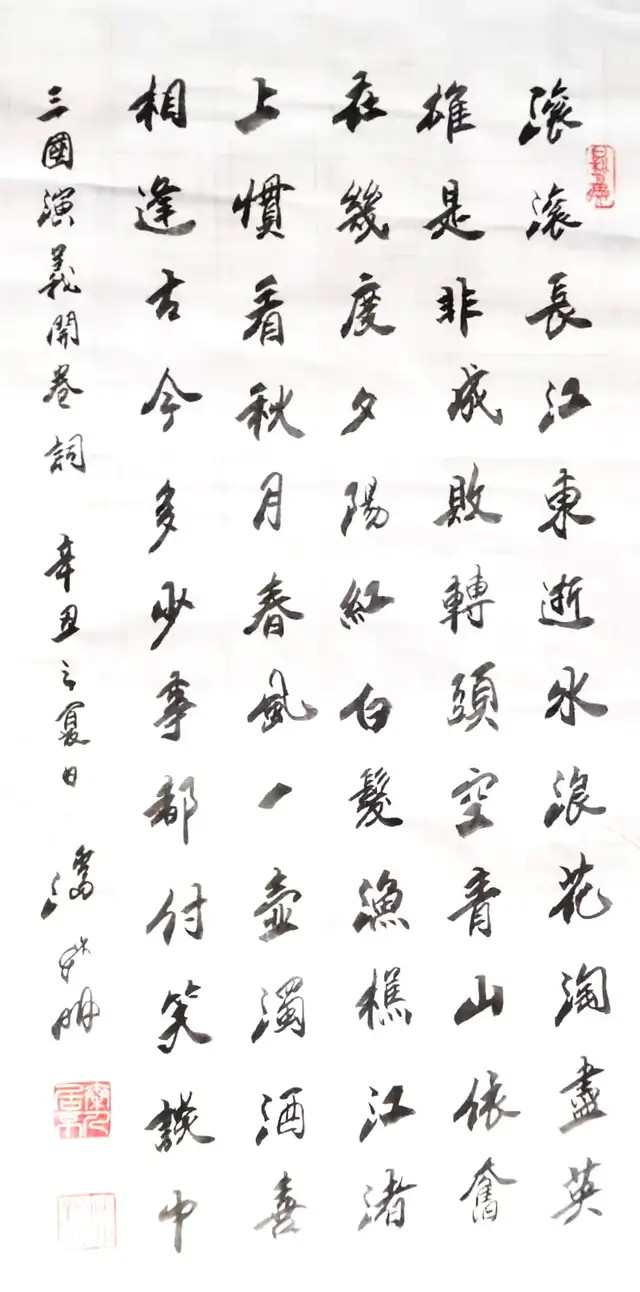 滾滾長江東逝水浪花淘盡英
雄是非成敗轉頭空青山依舊
在幾度夕陽紅白髮漁樵江渚
上慣看秋月春風一壺濁酒喜
相逢古今多少事都付笑談中
三國演義開卷詞 辛丑之夏日